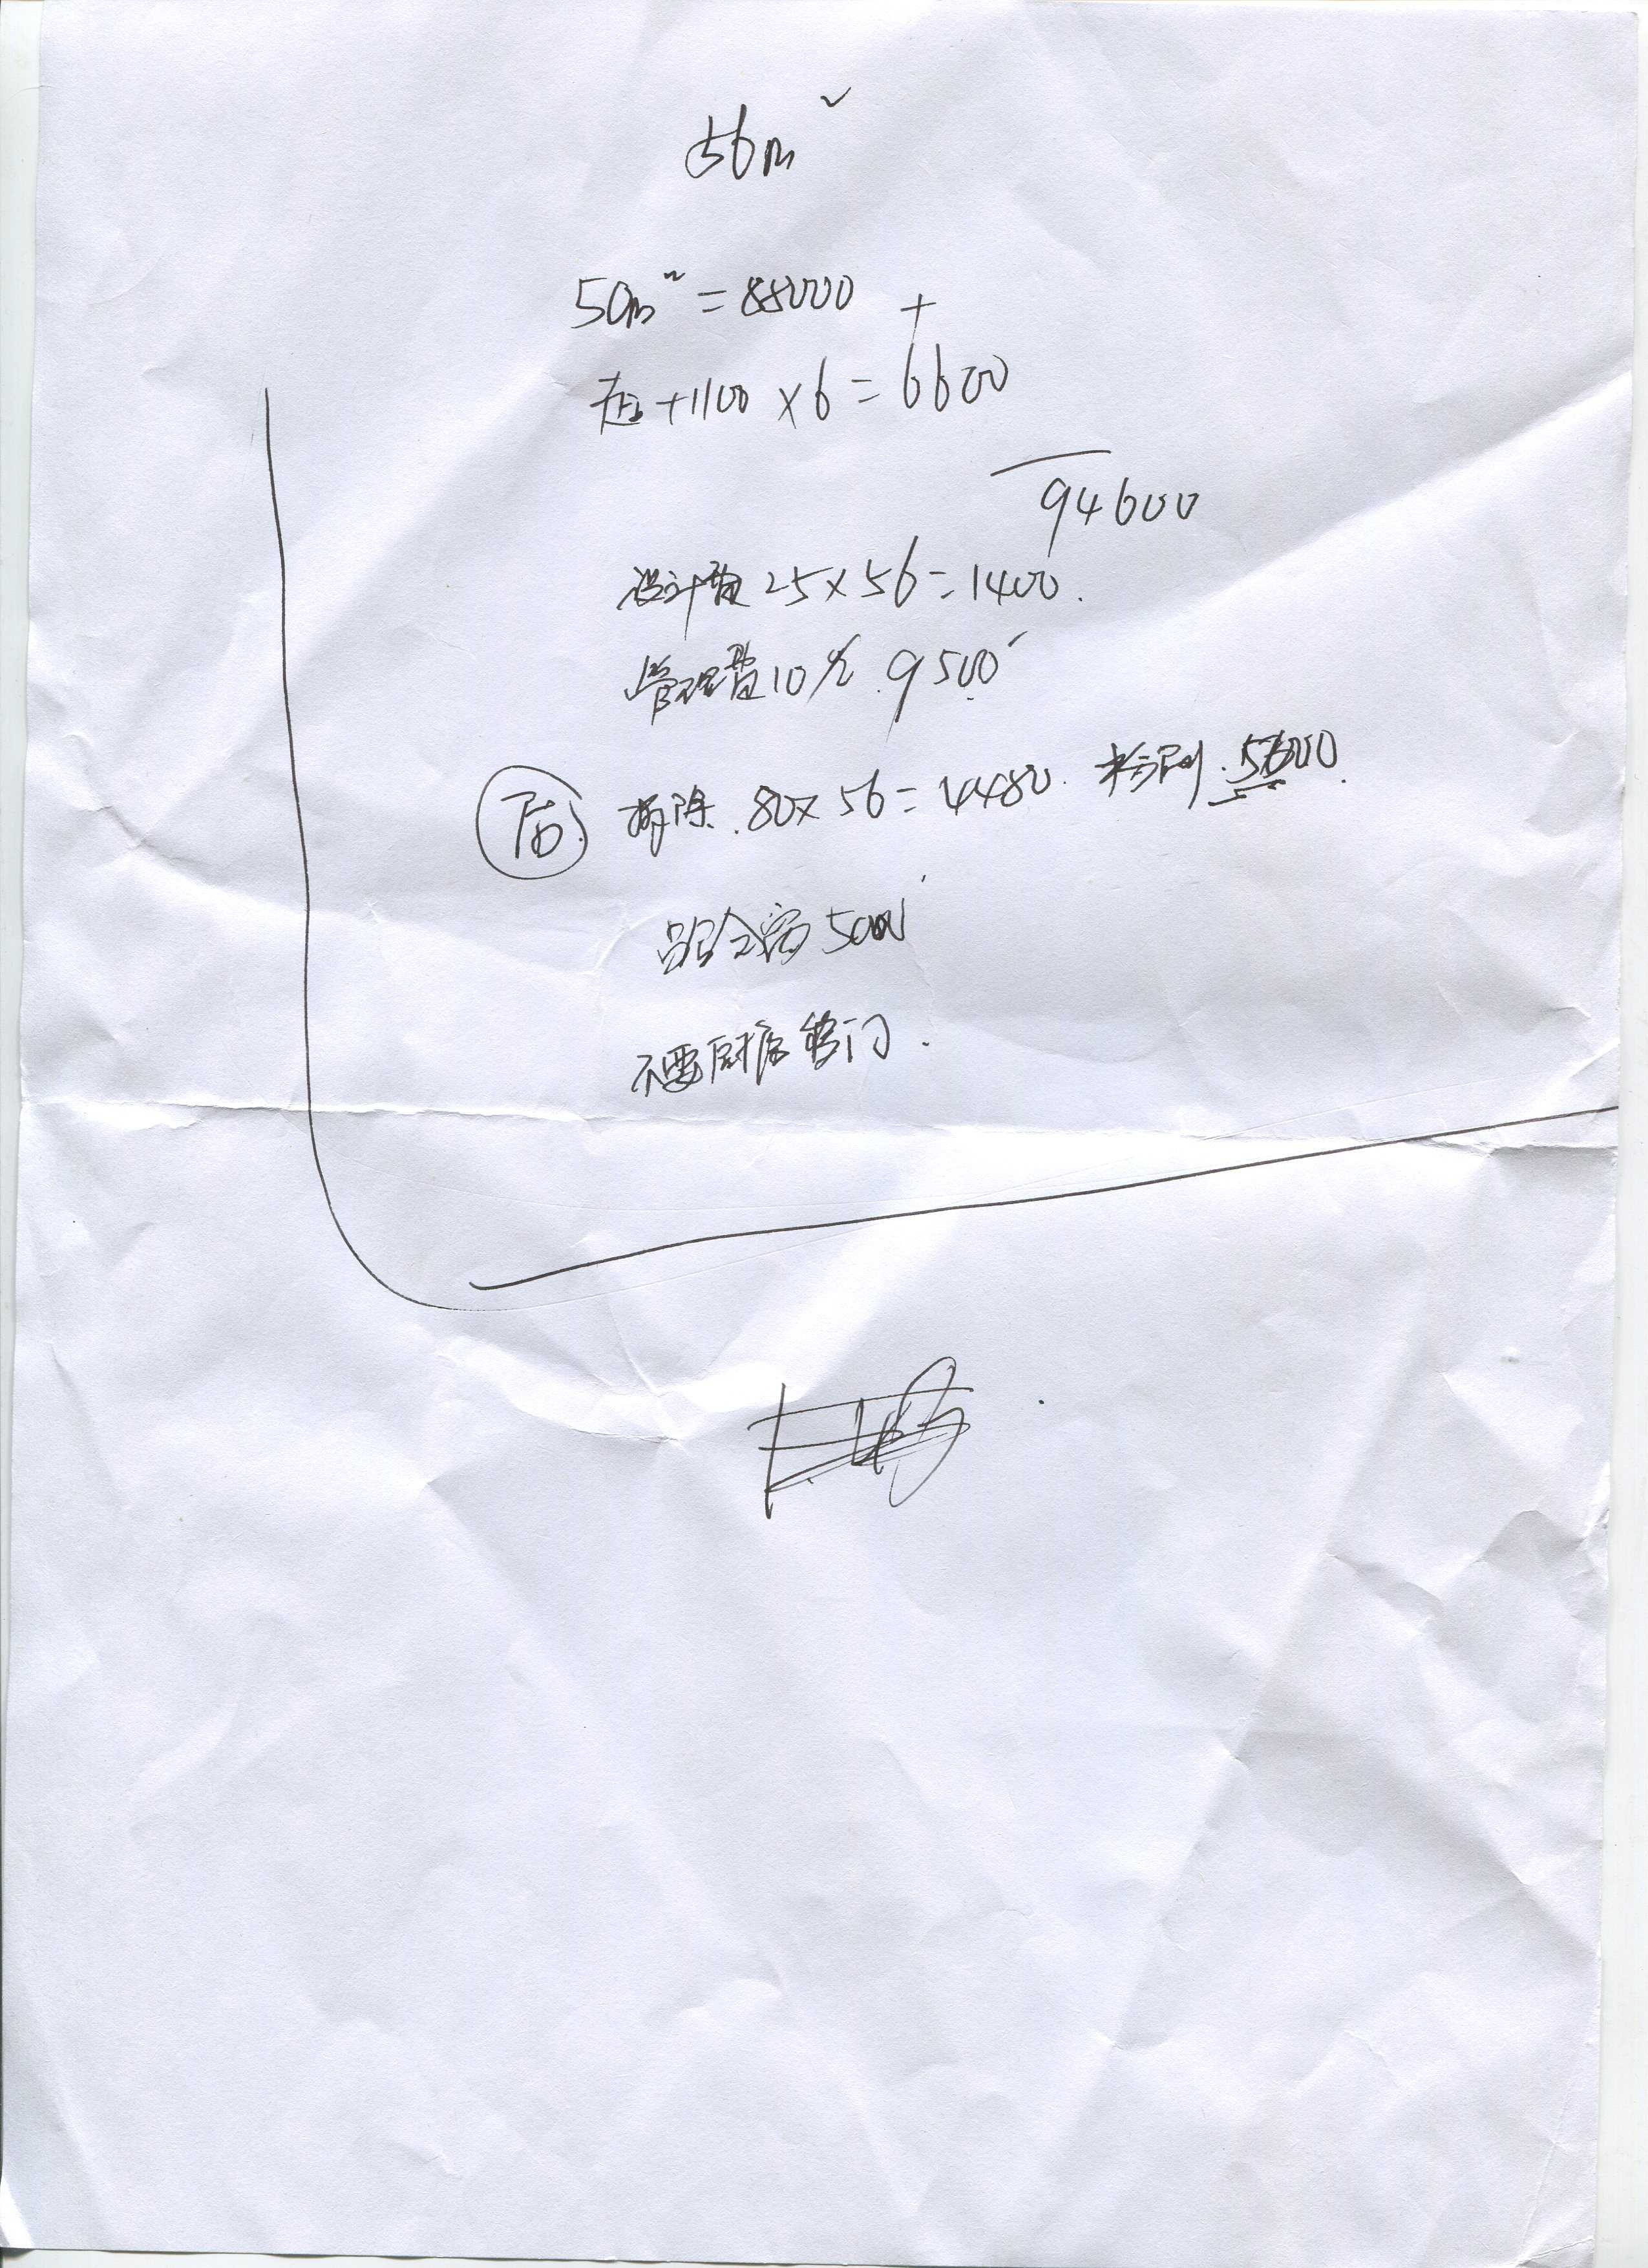 56m²
50m²=88000 +
超+1100×6=6600
94600
设计费25×56=1400.
管理费10% 9500
后 拆除.80×56=4480. 粉刷.5000.
铝合窗5000
不要厨房移门.